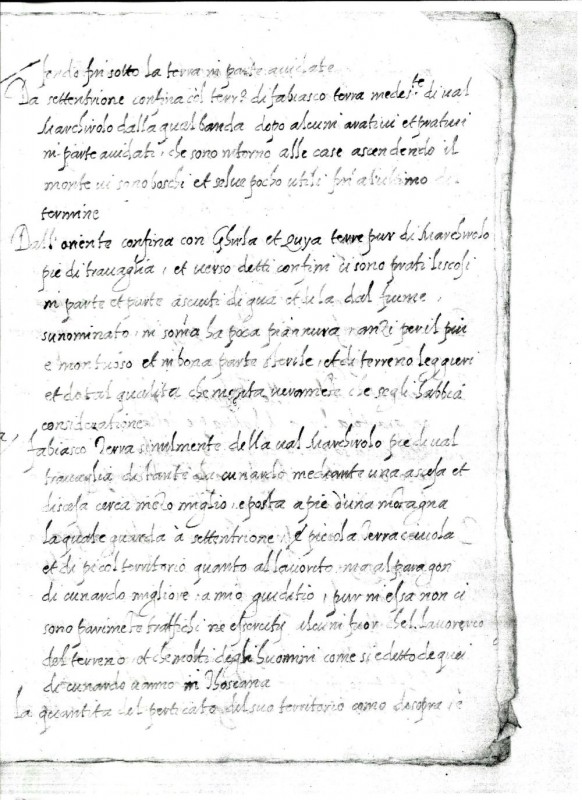 fendo fin sotto la terra in parte avidate
Da settentrione confina col terr.o di fabiasco terra medes.te di val
Marchirolo dalla qual banda dopo alcuni arativi et prativi
in parte avidati, che sono intorno alle case ascendendo il
monte vi sono boschi et selve pocho utili fin al ultimo
termine
Dall'oriente confina con Ghirla et Quya terre pur di Marchirolo
pie di travaglia, et verso detti confini vi sono prati liscosi
in parte et parte asciuti di qua et di la dal fiume,
sunominato, in soma ha poca piannura, anzi per il piu
e montuoso et in bona parte sterile, et di terreno leggieri
et di tal qualita che merita veramete che segli habbia
consideratione
fabiasco Terra similmente della val Marchirolo pie di val
travaglia distante da cunardo mediante una ascesa et
discesa cerca mezo miglio, e posta a pie d'una motagna
la quale guarda à settentrione, è picola Terra civola
et di picol territorio quanto al lavorito, ma al paragon
di cunardo migliore a mio giuditio, pur in essa non ci
sono parimete traffichi ne esercitij alcuni fuor chel lavorerio
del terreno, et che molti degli huomini come si è detto de quei
di cunardo vanno in Thoscana
La quantita del perticato del suo territorio como desopra, è